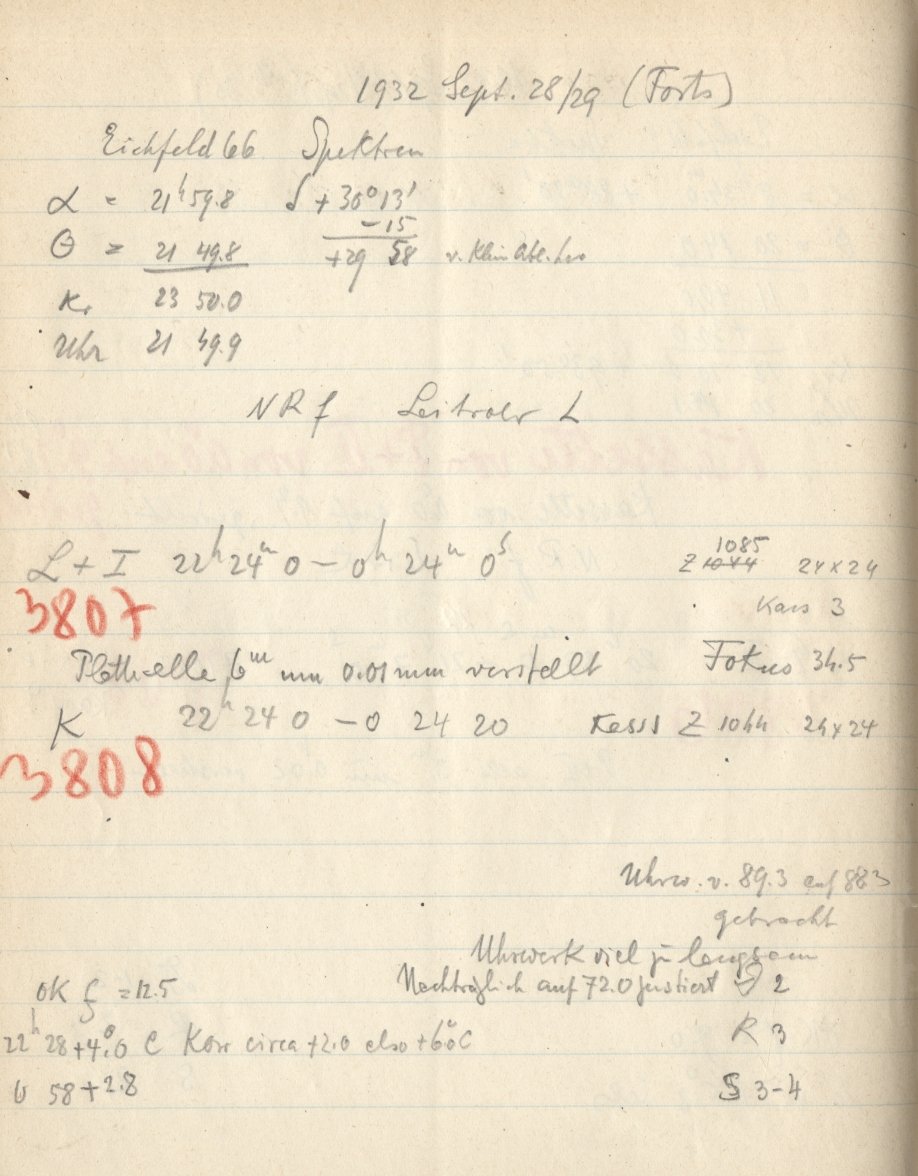 1932 Sept. 28/29 (Forts)
Eichfeld 66 Spektren
α = 21h 59.8 δ + 30° 13'
- 15
Θ = 21 49.8 +29 58 v. Klein Abl.
Kr 23 50.0
Uhr 21 49.9
NRf Leitrohr L
1085
L + I 22h 24m 0 – 0h 24m 0s Z 1044 24 x 24
3807 Kass 3
um 0.01 mm verstellt Fokus 34.5
K 22h 24 0 – 0 24 20 Kass Z 1044 24 x 24
3808
Uhrw. v. 89.3 auf 88.3
gebracht
Uhrwerk viel zu langsam
Nachträglich auf 72.0 justiert 2
OK f = 12.5
22h 28 + 4°.0 C Korr circa +2.0 also +6.0°C R 3
0 58 + 2.8 S 3-4